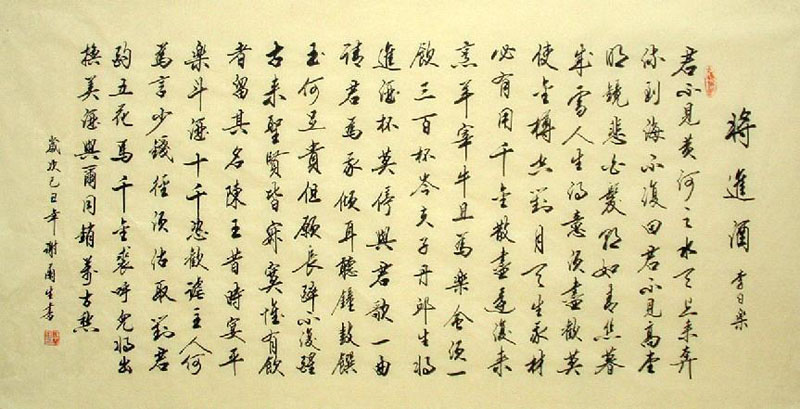 將進酒
君不見黃河之水天上來奔
流到海不復回君不見高堂
明鏡悲白髮朝如青絲暮
成雪人生得意須盡歡莫
使金樽空對月天生我材
必有用千金散盡還復來
烹羊宰牛且為樂會須一
飲三百杯岑夫子丹邱生將
進酒杯莫停與君歌一曲
請君為我傾耳聽鐘鼓饌
玉何足貴但願長醉不復醒
古來聖賢皆寂寞惟有飲
者留其名陳王昔時宴平
樂斗酒十千恣歡謔主人何
為言少錢徑須沽取對君
酌五花馬千金裘呼兒將出
換美酒與爾同銷萬古愁
歲次己丑年謝甫生書